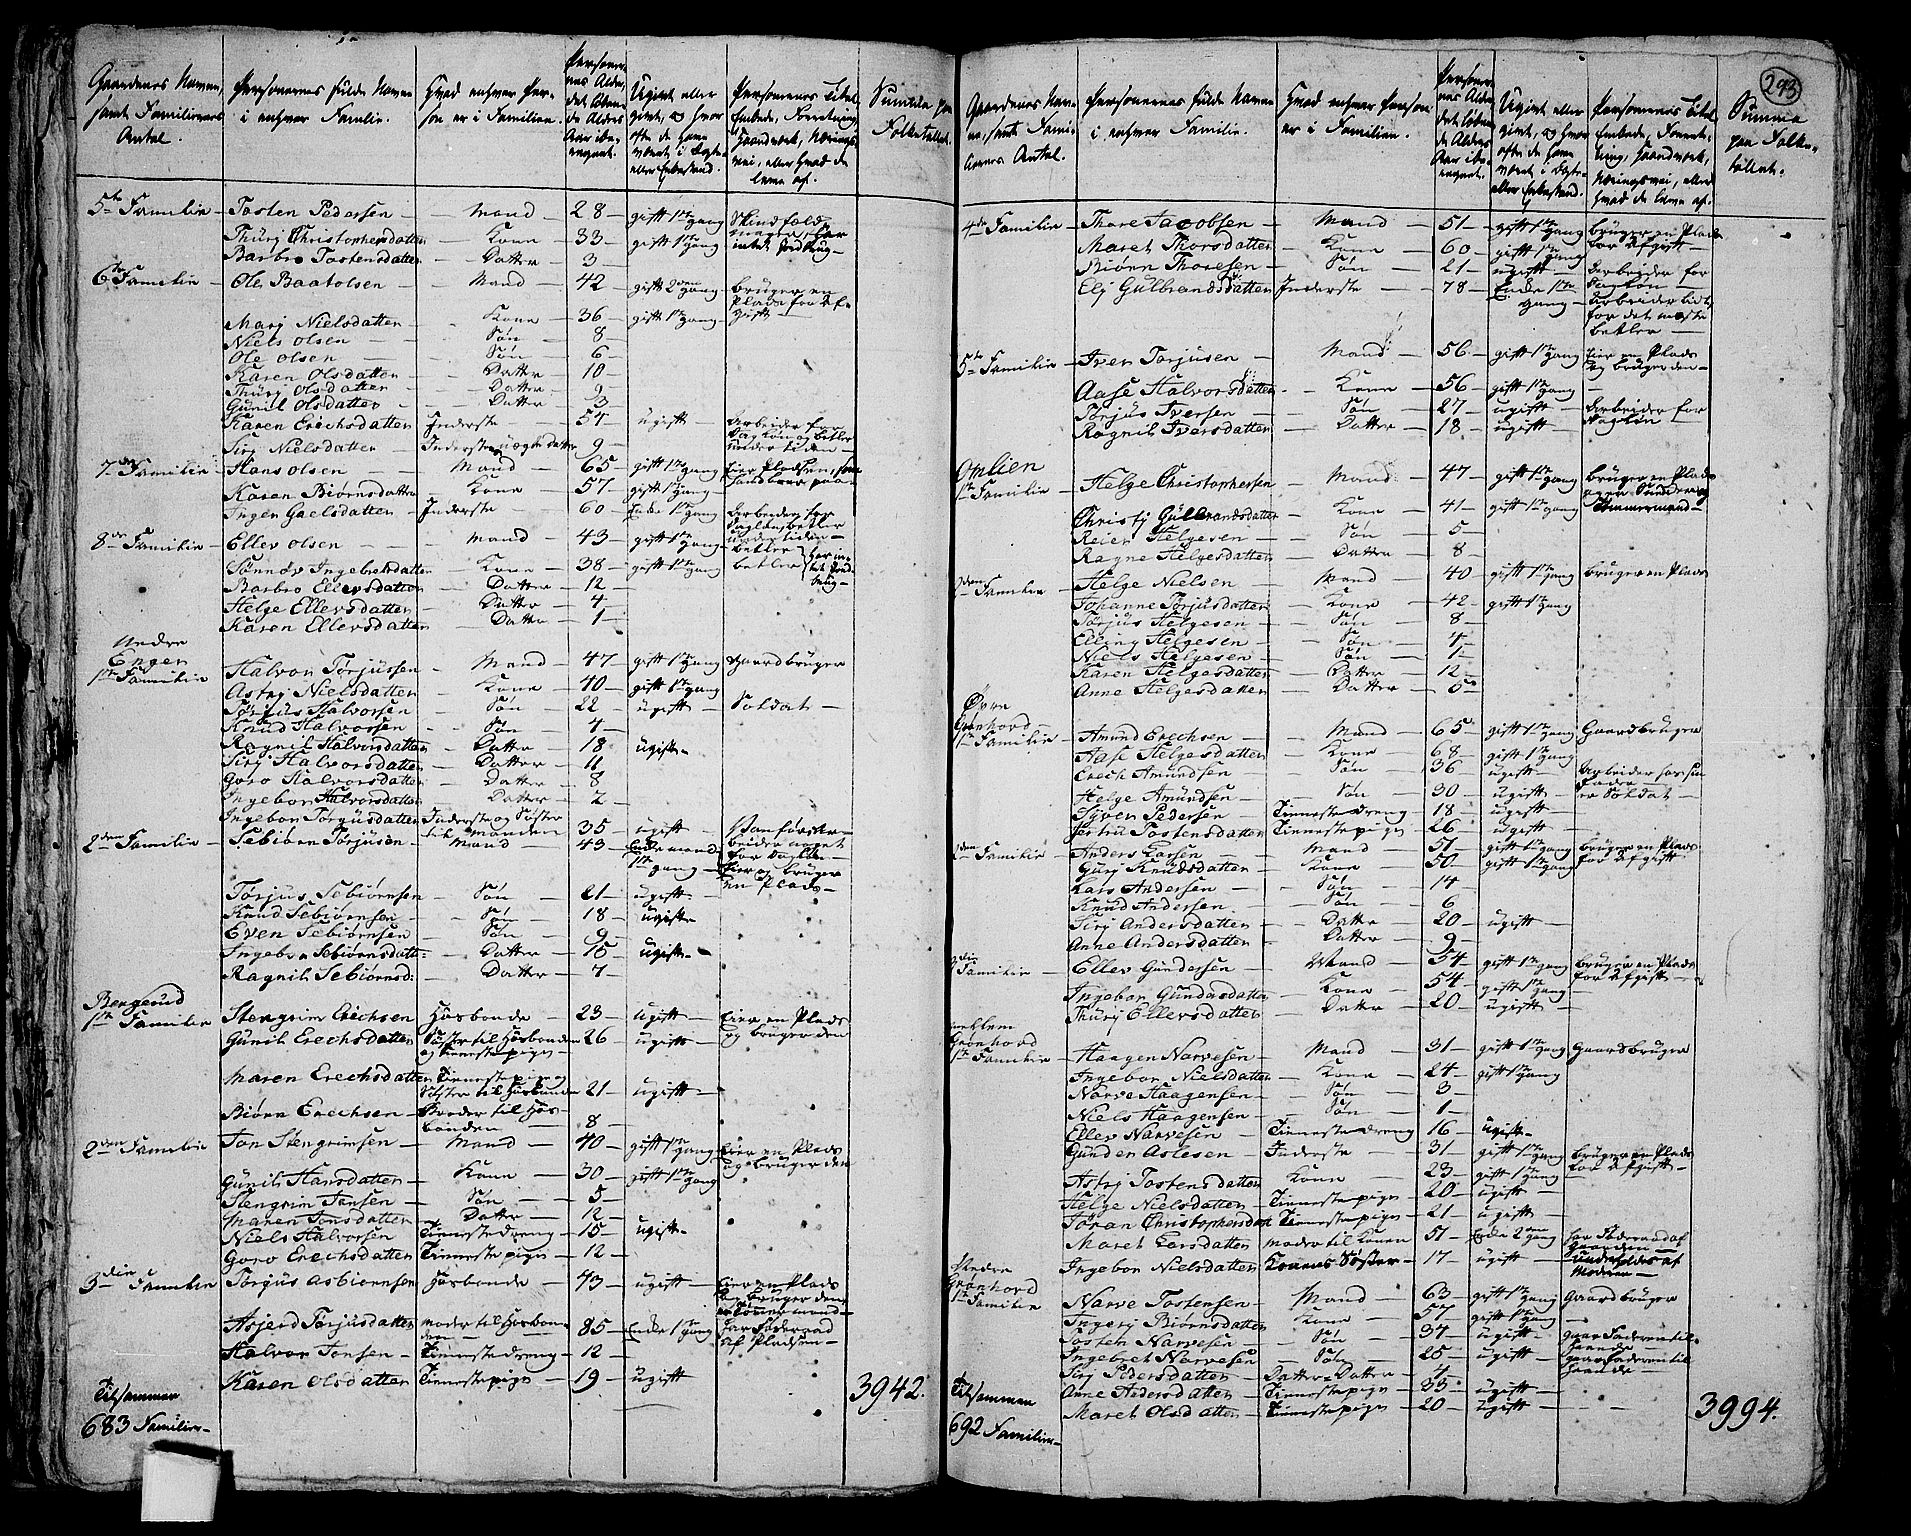 293
Gaardenes Navne, samt Familiernes Antal.
Personernes fulde Navne i enhver Familie.
Hvad enhver Person er i Familien.
Personernes Alder, det løbende Alders Aar iberegnet.
Ugivt eller givt, og hvor ofte de have været i Egte- eller Enkestand.
Personernes Titel, Embede, Forretning, Haandværk, Næringsvei, eller hvad de leve af.
Summa paa Folketallet.
5te Familie – Tosten Pedersen – Mand – 28 – gift 1ste gang
Thurj Christophersdatter – Kone – 33 – gift 1ste gang intet Jordbrug –
Barbro Tostensdatter – Datter – 3 –
6te Familie – Ole Baatolsen – Mand – 42 – gift 2den gang – bruger en Plads for Afgift –
Marj Nielsdatter – Kone – 36 – gift 1ste gang
Niels Olsen – Søn – 8 –
Ole Olsen – Søn – 6 –
Karen Olsdatter – Datter – 10 –
Thurj Olsdatter – Datter – 9 –
Gunil Olsdatter – Datter – 3 –
Karen Erechsdatter – Inderste – 54 – ugift – Arbeider for Dagløn og betler under tiden –
Sirj Nielsdatter – Inderstes uægte datter 9 –
7de Familie – Hans Olsen – Mand – 65 – gift 1ste gang – Eier Pladsen, som Handboer paa –
Karen Biørnsdatter – Kone – 57 – gift 1ste gang –
Ingen Gaelsdatter – Inderste – 60 – Enke 1ste gang
8de Familie – Ellev Olsen – Mand – 43 – gift 1ste gang – betler
Sønnov Ingebretsdatter – Kone – 38 – gift 1ste gang betler
Barbro Ellevsdatter – Datter – 12 –
Helge Ellevsdatter – Datter – 4 –
Karen Ellevsdatter – Datter – 1 –
Nedre Engen
1ste Familie – Halvor Tørjussen – Mand – 47 – gift 1ste gang – Gaardbruger
Astrj Nielsdatter – Kone – 40 – gift 1ste gang
Tørjus Halvorsen – Søn – 22 – ugift – Soldat –
Knud Halvorsen – Søn – 4 –
Ragnil Halvorsdatter – Datter – 18 – ugift –
Sirj Halvorsdatter – Datter – 11
Goro Halvorsdatter – Datter – 8
Ingebor Halvorsdatter – Datter – 2 –
Ingebor Torgusdatter Inderste og Søster til Manden 35 – ugift –
2den Familie – Sebiørn Tørjusen – Mand – 43 – Enkemand 1ste gang – Eier og bruger en Plads –
Tørjus Sebiørnsen – Søn – 21 – ugift –
Knud Sebiørnsen – Søn – 18 – ugift –
Even Sebiørnsen – Søn – 9 –
Ingebor Sebiørnsdatt: – Datter – 15 – ugift –
Ragnil Sebiørnsd: – Datter – 7
Bergerud
1ste Familie – Stengrim Erechsen Husbonde – 23 – ugift – Eier en Plads og bruger den
Gunil Erechsdatter Søster til Husbonden og Tienestepige – 26 – ugift –
Maren Erechsdatter Tienestepige og Søster til Husbonden 21 – ugift –
Biørn Erechsen – Broder til Husbonden – 8 –
2den Familie – Jon Stengrimsen – Mand – 40 – gift 1ste gang – Eier en Plads og bruger den
Gunil Hansdatter – Kone – 30 – gift 1ste gang
Stengrim Jonsen – Søn – 5 –
Maren Jonsdatter – Datter – 12 –
Niels Halvorsen – Tienestedreng – 15 – ugift –
Goro Erechsdatter Tienestepige – 12 –
3die Familie – Torgus Asbiørnsen – Husbonde – 43 – ugift – Eier en Plads og bruger den, er Tømmermand –
Asjerd Torjusdatter Moder til Husbonden – 85 – Enke 1ste gang har Føderaad af Pladsen –
Halvor Jonsen – Tienestedreng – 12 –
Karen Olsdatter Tienestepige – 19 – ugift
Tilsammen 683 Familier – 3942.
Gaardenes Navne, samt Familiernes Antal.
Personernes fulde Navne i enhver Familie.
Hvad enhver Person er i Familien.
Personernes Alder, det løbende Alders Aar iberegnet.
Ugivt eller givt, og hvor ofte de have været i Egte- eller Enkestand.
Personernes Titel, Embede, Forretning, Haandværk, Næringsvei, eller hvad de leve af.
Summa paa Folketallet.
4de Familie – Thore Jacobsen – Mand – 51 – gift 1ste gang bruger en Plads for Afgift –
Maret Thorsdatter – Kone – 60 – gift 1ste gang
Biørn Thoresen – Søn – 21 – ugift – Arbeider for Dagløn –
Elj Gulbrandsdatter Inderste – 78 – Enke 1ste gang – Arbeider lidt, for det meste betler –
5te Familie – Iver Torjusen – Mand – 56 – gift 1ste gang Eier en Plads og bruger den –
Aase Halvorsdatter – Kone – 56 – gift 1ste gang –
Torjus Iversen – Søn – 27 – ugift – Arbeider for Dagløn –
Ragnil Iversdatter – Datter – 18 – ugift –
Omlien
1ste Familie – Helge Christophersen – Mand – 47 – gift 1ste gang bruger en Plads Tømmermand –
Christj Gulbrandsdatter – Kone – 41 – gift 1ste gang
Reier Helgesen – Søn – 5 –
Ragne Helgesdatter – Datter – 8 –
2den Familie – Helge Nielsen – Mand – 40 – gift 1ste gang bruger en Plads
Johanne Tørjusdatter – Kone – 42 – gift 1ste gang
Tørjus Helgesen – Søn – 8 –
Elling Helgesen – Søn – 4 –
Niels Helgesen – Søn – 1 –
Karen Helgesdatter – Datter – 12 –
Anne Helgesdatter – Datter – 5 –
Øvre Grønhord
1ste Familie – Amund Erechsen – Mand – 65 – gift 1ste gang Gaardbruger
Aase Helgesdatter – Kone – 68 – gift 1ste gang
Erech Amundsen – Søn – 36 – ugift – Arbeider hos sin Fader –
Helge Amundsen – Søn – 30 – ugift – er Soldat –
Syver Pedersen – Tienestedreng – 18 – ugift –
Jertru Tostensdatter – Tienestepige – 26 – ugift –
2den Familie – Anders Larsen – Mand – 51 – gift 1ste gang bruger en Plads for Afgift
Gurj Knudsdatter – Kone – 50 – gift 1ste gang
Lars Andersen – Søn – 14
Knud Andersen – Søn – 6
Sirj Andersdatter – Datter – 20 – ugift –
Anne Andersdatter – Datter – 9 –
3die Familie – Ellev Gundersen – Mand – 54 – gift 1ste gang bruger en Plads for Afgift –
Ingebor Gundersdatter – Kone – 54 – gift 1ste gang
Thurj Ellevsdatter – Datter – 20 – ugift –
Mellem Grønhord
1ste Familie – Haagen Narvesen – Mand – 31 – gift 1ste gang Gaardbruger
Ingebor Nielsdatter – Kone – 24 – gift 1ste gang
Narve Haagensen – Søn – 3 –
Niels Haagensen – Søn – 1 –
Ellev Narvesen – Tienestedreng 16 – ugift –
Gunder Aslesen – Inderste – 31 – gift 1ste gang bruger en Plads for Afgift –
Astrj Tostensdatter – Kone – 23 – gift 1ste gang –
Helge Nielsdatter – Tienestepige – 20 – ugift –
Joran Christophersdatt Tienestepige – 21 – ugift –
Maret Larsdatter – Moder til Konen 51 – Enke 2den gang har Føderaad af Gaarden –
Ingebor Nielsdatter – Konens Søster – 17 – ugift – underholdes af Moderen –
Nedre Grønhord
1ste Familie – Narve Tostensen – Mand – 63 – gift 1ste gang Gaardbruger
Ingerj Biørnsdatter – Kone – 57 – gift 1ste gang –
Tosten Narvesen – Søn – 37 – ugift – gaar Faderen til haande –
Ingebret Narvesen – Søn – 25 – ugift – gaar Faderen til haande –
Sirj Pedersdatter – Datter Datter – 4 –
Anne Andersdatter – Tienestepige – 33 – ugift –
Maret Olsdatter – Tienestepige – 20 – ugift –
Tilsammen 692 Familier – 3994.